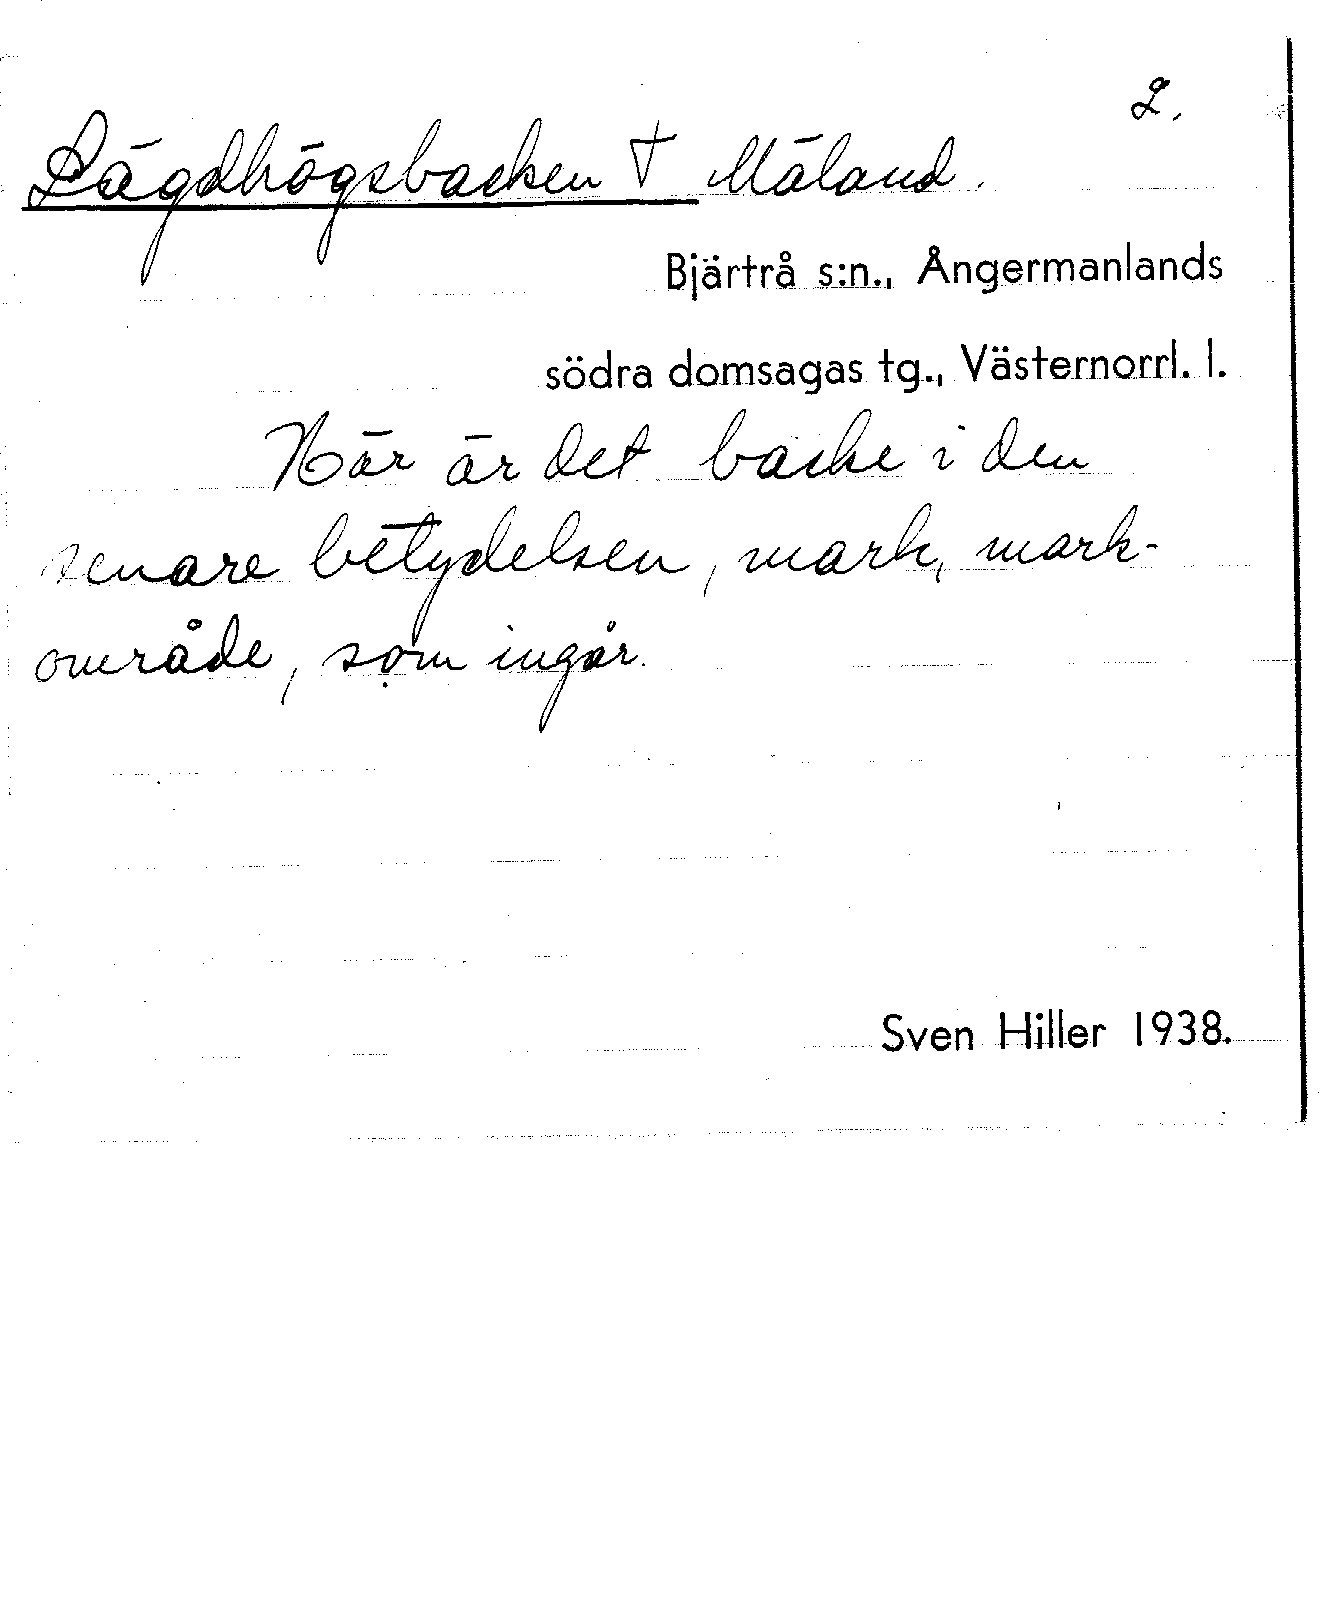 2.
Lägdhögsbacken † Mäland.
Bjärtrå s:n., Ångermanlands
södra domsagas tg., Västernorrl. l.
Här är det backe i den
senare betydelsen, mark, mark-
område, som ingår.
Sven Hiller 1938.